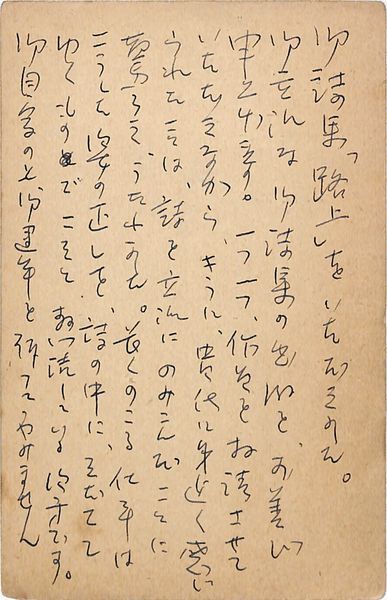 御詩集「路上」をいただきました。
御立派な御詩集の出版を、お喜び
申上げます。一つ一つ、作品をお読させて
いただきながら、さらに、 身近く感じ
られたことは、詩を立派に のみこんだことに
驚ろきをうたれました。長くのこる仕事は
こうした姿の正しさを、詩の中に、そだてて
ゆくものでこそと 読している 今です。
御自愛の上御健筆を祈ってやみません